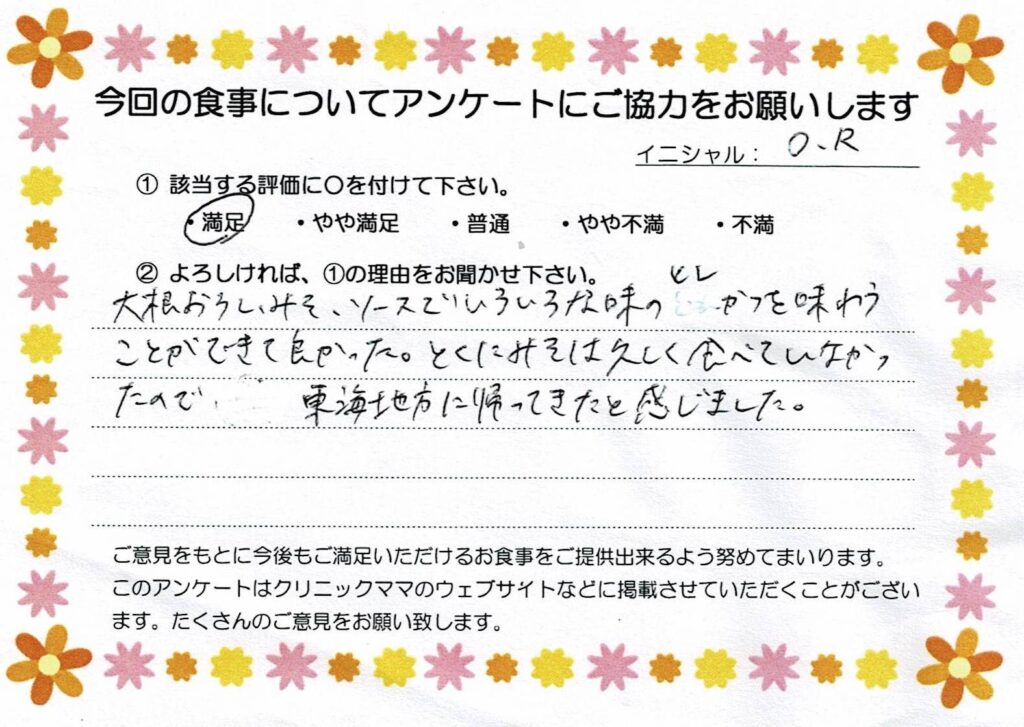 今回の食事についてアンケートにご協力をお願いします
イニシャル： O、R
① 該当する評価に〇を付けて下さい。
・満足 ・やや満足 ・普通 ・やや不満 ・不満
② よろしければ、①の理由をお聞かせ下さい。
大根おろし、みそ、ソースでいろいろな味のヒレかつを味わう
ことができて良かった。とくにみそは久しく食べていなかっ
たので、東海地方に帰ってきたと感じました。
ご意見をもとに今後もご満足いただけるお食事をご提供出来るよう努めてまいります。
このアンケートはクリニックママのウェブサイトなどに掲載させていただくことがござい
ます。たくさんのご意見をお願い致します。